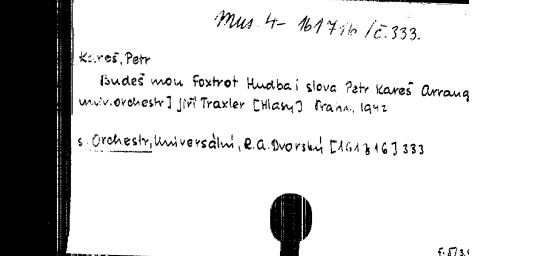 Mus. 4- 1617 16 /č. 333.
Kareš, Petr
Budeš mou Foxtrot Hudba i slova Petr Kareš Arrang
univ. orchestr] Jiří Traxler [Hlasy] Praha, 1942
s. Orchestr, Universální, R.A. Dvorský [161716] 333